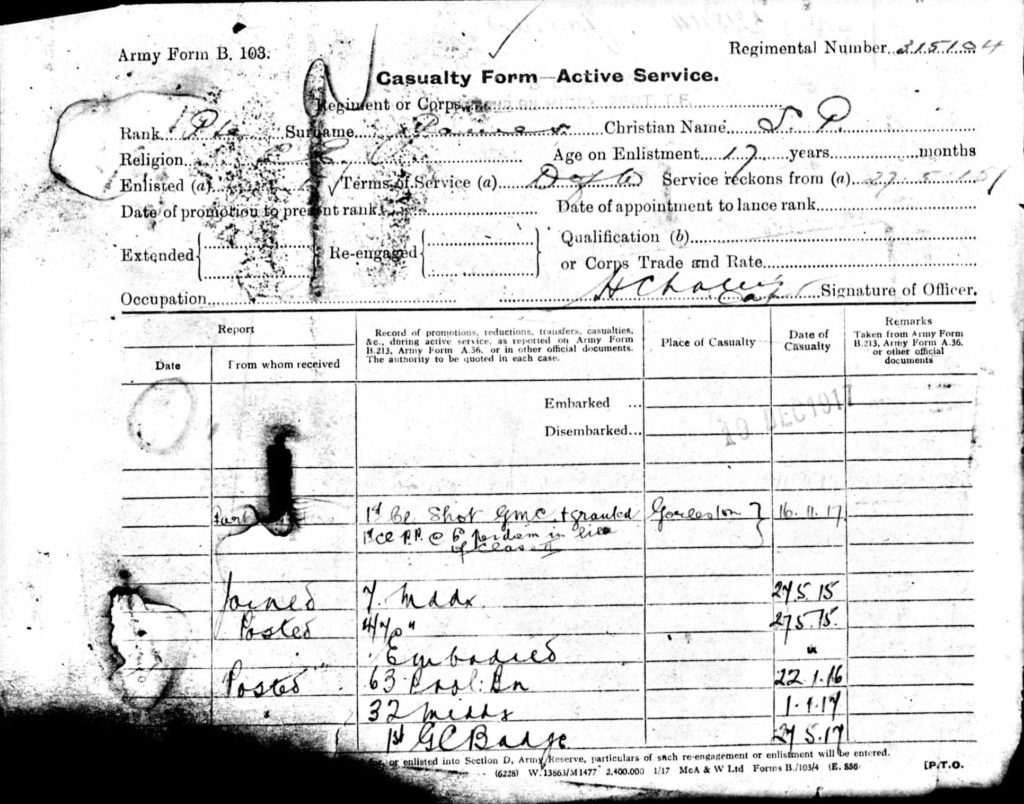 Army Form B. 103.
Regimental Number 315184
Casualty Form—Active Service.
Regiment or Corps
Rank Pte Surname Christian Name S. P.
Religion C E Age on Enlistment 17 years months
Enlisted (a) Terms of Service (a) Service reckons from (a) 27.5.15
Date of promotion to present rank Date of appointment to lance rank
Extended Re-engaged Qualification (b)
or Corps Trade and Rate
Occupation Signature of Officer.
Report
Date
From whom received
Record of promotions, reductions, transfers, casualties, &c., during active service, as reported on Army Form B.213, Army Form A.36, or in other official documents. The authority to be quoted in each case.
Place of Casualty
Date of Casualty
Remarks
Taken from Army Form B.213, Army Form A.36, or other official documents
Embarked ...
Disembarked...
19 DEC 1917
Part 1st Cl Shot GMC + granted Gorleston 16.11.17
1st Cl P.P. @ 6d per diem in lieu
of Class II
Joined 7. Mddx. 27 5 15
Posted 4/7th " 27 5 15
Embodied "
Posted 63 Prov: Bn 22.1.16
32 Middx 1.1.17
1st GC Badge 27.5.17
or enlisted into Section D, Army Reserve, particulars of such re-engagement or enlistment will be entered.
(6228) W. 13863/M1477 2,400,000 1/17 McA & W Ltd Forms B./103/4 (E. 856
[P.T.O.